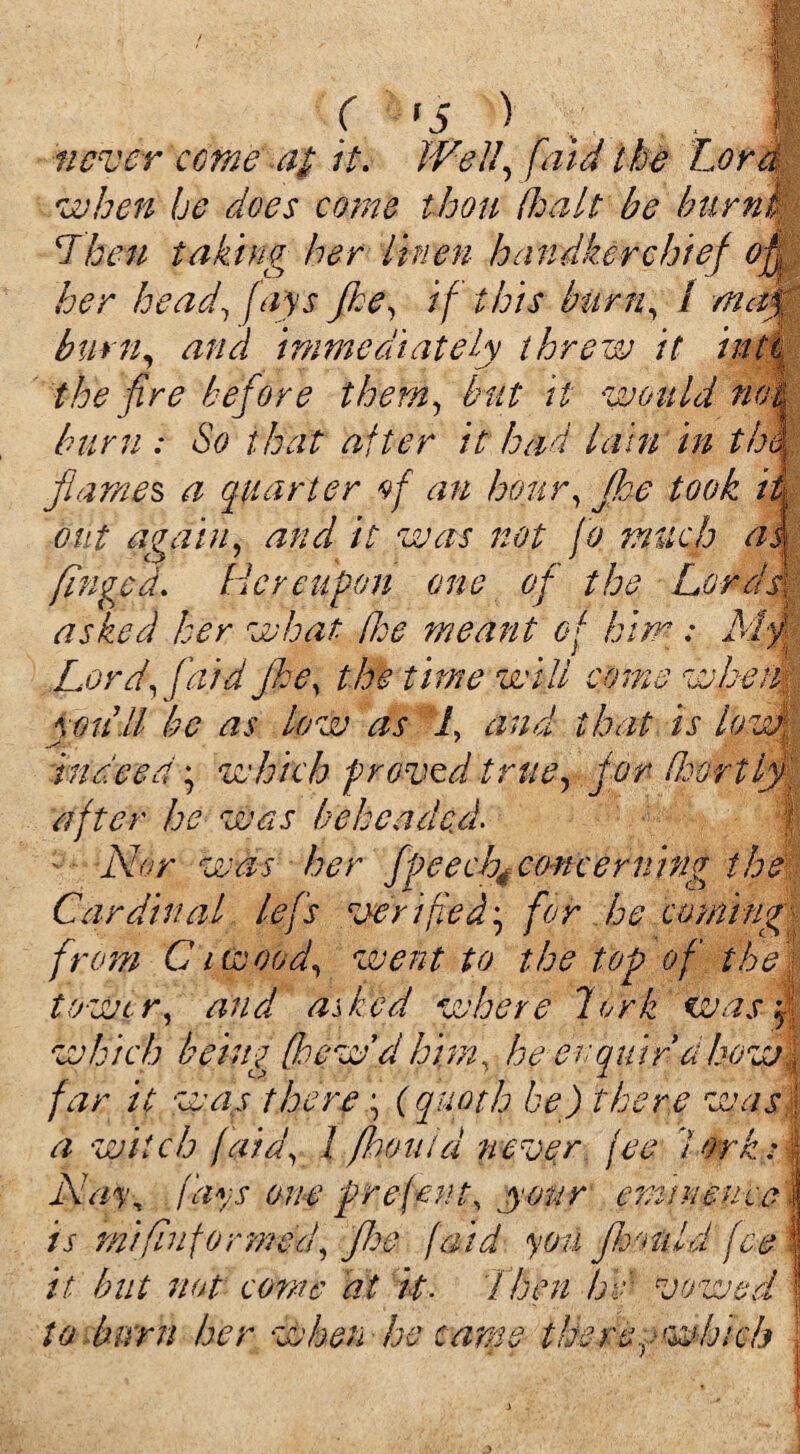 ( 15 )
never come at it. Well, ſaid the Lord
when he does come thou ſhalt be burnt
Then taking her linen handkerchief off
her head, ſays ſhe, if this burn, I may
burn, and immediately threw it into
the fire before them, but it would not
burn : So that after it had lain in the
flames a quarter of an hour, ſhe took it
out again, and it was not ſo much as
ſinged. Hereupon one of the Lords
asked her what ſhe meant of him : My
Lord, ſaid ſhe, the time will come when
you'll be as low as I, and that is low
indeed ; which proved true, for ſhortly
after he was beheaded.
Nor was her ſpeech concerning the
Cardinal leſs verified ; for he coming
from Cawood, went to the top of the
tower, and asked where York was ;
which being ſhew'd him, he enquir'd how
far it was there ; (quoth he) there was
a witch ſaid, I ſhould never ſee York :
Nay, ſays one preſent, your eminence
is miſinformed, ſhe ſaid you ſhould ſee
it but not come at it. Then he vowed
to burn her when he came there, which